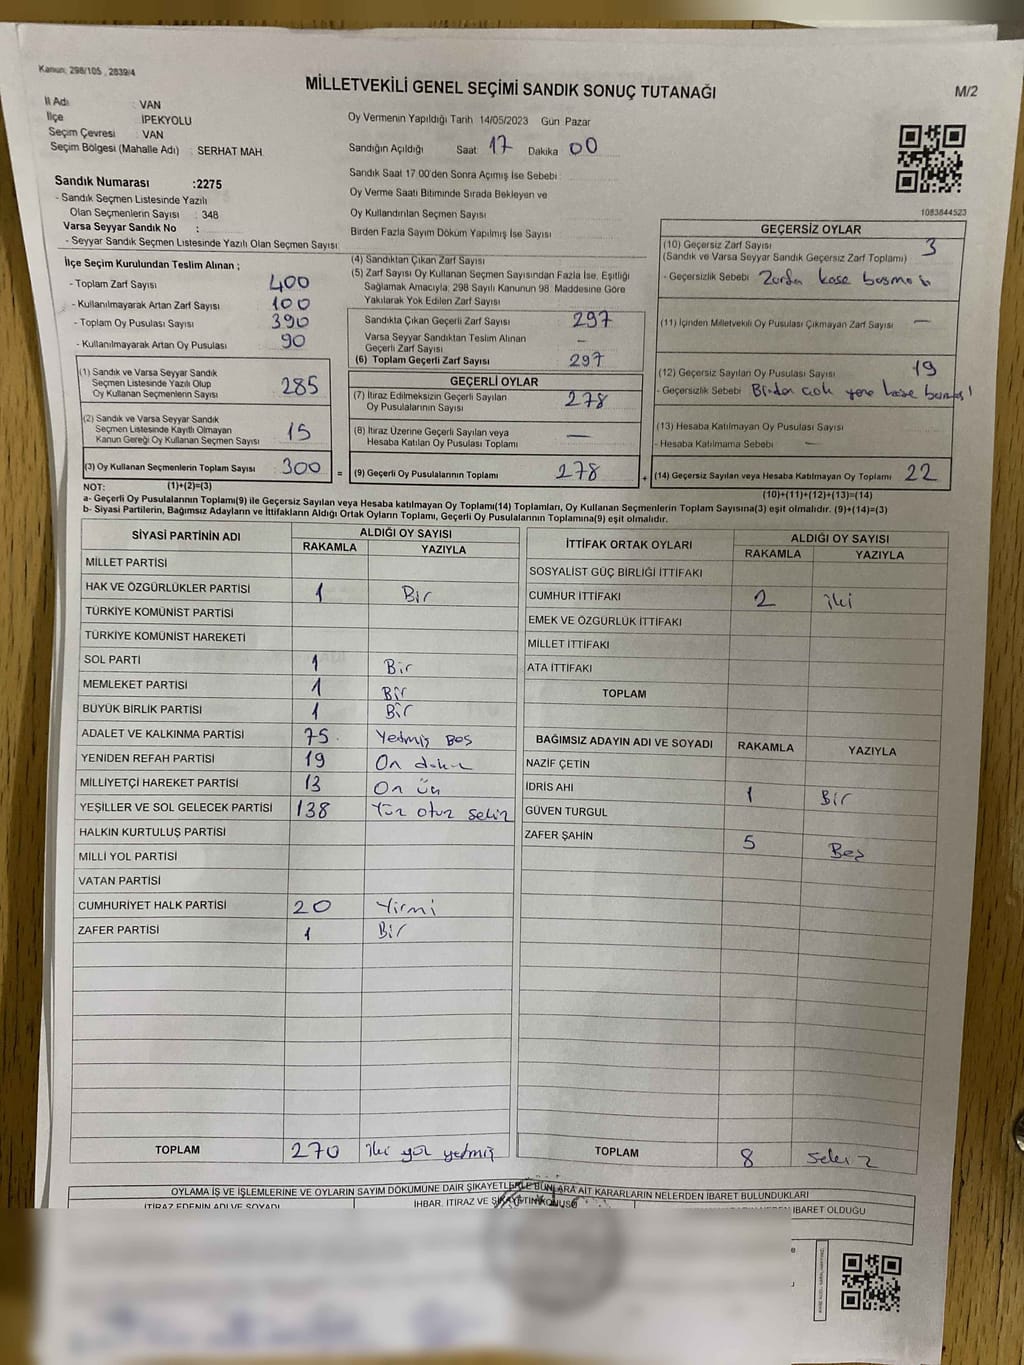 Kanun: 298/105 , 2839/4
MİLLETVEKİLİ GENEL SEÇİMİ SANDIK SONUÇ TUTANAĞI
M/2
İl Adı : VAN
İlçe : İPEKYOLU
Seçim Çevresi : VAN
Seçim Bölgesi (Mahalle Adı) : SERHAT MAH.
Oy Vermenin Yapıldığı Tarih 14/05/2023 Gün Pazar
Sandığın Açıldığı Saat 17 Dakika 00
Sandık Saat 17.00'den Sonra Açımış İse Sebebi :
Oy Verme Saati Bitiminde Sırada Bekleyen ve
Oy Kullandırılan Seçmen Sayısı
Birden Fazla Sayım Döküm Yapılmış İse Sayısı
1083844523
Sandık Numarası :2275
- Sandık Seçmen Listesinde Yazılı
Olan Seçmenlerin Sayısı : 348
Varsa Seyyar Sandık No :
- Seyyar Sandık Seçmen Listesinde Yazılı Olan Seçmen Sayısı:
İlçe Seçim Kurulundan Teslim Alınan ;
- Toplam Zarf Sayısı 400
- Kullanılmayarak Artan Zarf Sayısı 100
- Toplam Oy Pusulası Sayısı 390
- Kullanılmayarak Artan Oy Pusulası 90
(1) Sandık ve Varsa Seyyar Sandık
Seçmen Listesinde Yazılı Olup
Oy Kullanan Seçmenlerin Sayısı 285
(2) Sandık ve Varsa Seyyar Sandık
Seçmen Listesinde Kayıtlı Olmayan
Kanun Gereği Oy Kullanan Seçmen Sayısı 15
(3) Oy Kullanan Seçmenlerin Toplam Sayısı 300 =
(4) Sandıktan Çıkan Zarf Sayısı
(5) Zarf Sayısı Oy Kullanan Seçmen Sayısından Fazla İse, Eşitliği
Sağlamak Amacıyla; 298 Sayılı Kanunun 98. Maddesine Göre
Yakılarak Yok Edilen Zarf Sayısı
Sandıkta Çıkan Geçerli Zarf Sayısı 297
Varsa Seyyar Sandıktan Teslim Alınan
Geçerli Zarf Sayısı -
(6) Toplam Geçerli Zarf Sayısı 297
GEÇERLİ OYLAR
(7) İtiraz Edilmeksizin Geçerli Sayılan
Oy Pusulalarının Sayısı 278
(8) İtiraz Üzerine Geçerli Sayılan veya
Hesaba Katılan Oy Pusulası Toplamı —
(9) Geçerli Oy Pusulalarının Toplamı 278 +
GEÇERSİZ OYLAR
(10) Geçersiz Zarf Sayısı 3
(Sandık ve Varsa Seyyar Sandık Geçersiz Zarf Toplamı)
- Geçersizlik Sebebi
(11) İçinden Milletvekili Oy Pusulası Çıkmayan Zarf Sayısı —
(12) Geçersiz Sayılan Oy Pusulası Sayısı 19
- Geçersizlik Sebebi
(13) Hesaba Katılmayan Oy Pusulası Sayısı
- Hesaba Katılmama Sebebi —
(14) Geçersiz Sayılan veya Hesaba Katılmayan Oy Toplamı 22
NOT: (1)+(2)=(3)
(10)+(11)+(12)+(13)=(14)
a- Geçerli Oy Pusulalarının Toplamı(9) ile Geçersiz Sayılan veya Hesaba katılmayan Oy Toplamı(14) Toplamları, Oy Kullanan Seçmenlerin Toplam Sayısına(3) eşit olmalıdır. (9)+(14)=(3)
b- Siyasi Partilerin, Bağımsız Adayların ve İttifakların Aldığı Ortak Oyların Toplamı, Geçerli Oy Pusulalarının Toplamına(9) eşit olmalıdır.
SİYASİ PARTİNİN ADI
ALDIĞI OY SAYISI
RAKAMLA YAZIYLA
MİLLET PARTİSİ
HAK VE ÖZGÜRLÜKLER PARTİSİ 1 Bir
TÜRKİYE KOMÜNİST PARTİSİ
TÜRKİYE KOMÜNİST HAREKETİ
SOL PARTİ 1 Bir
MEMLEKET PARTİSİ 1 Bir
BÜYÜK BİRLİK PARTİSİ 1 Bir
ADALET VE KALKINMA PARTİSİ 75 Yetmiş Beş
YENİDEN REFAH PARTİSİ 19 On dokuz
MİLLİYETÇİ HAREKET PARTİSİ 13 On üç
YEŞİLLER VE SOL GELECEK PARTİSİ 138 Yüz otuz sekiz
HALKIN KURTULUŞ PARTİSİ
MİLLİ YOL PARTİSİ
VATAN PARTİSİ
CUMHURİYET HALK PARTİSİ 20 Yirmi
ZAFER PARTİSİ 1 Bir
TOPLAM 270 İki yüz yetmiş
İTTİFAK ORTAK OYLARI
ALDIĞI OY SAYISI
RAKAMLA YAZIYLA
SOSYALİST GÜÇ BİRLİĞİ İTTİFAKI
CUMHUR İTTİFAKI 2 iki
EMEK VE ÖZGÜRLÜK İTTİFAKI
MİLLET İTTİFAKI
ATA İTTİFAKI
TOPLAM
BAĞIMSIZ ADAYIN ADI VE SOYADI RAKAMLA YAZIYLA
NAZİF ÇETİN
İDRİS AHI 1 Bir
GÜVEN TURGUL
ZAFER ŞAHİN 5 Beş
TOPLAM 8 sekiz
OYLAMA İŞ VE İŞLEMLERİNE VE OYLARIN SAYIM DÖKÜMÜNE DAİR ŞİKAYETLERLE BUNLARA AİT KARARLARIN NELERDEN İBARET BULUNDUKLARI
İTİRAZ EDENİN ADI VE SOYADI
İHBAR, İTİRAZ VE ŞİKAYETİN KONUSU
İBARET OLDUĞU